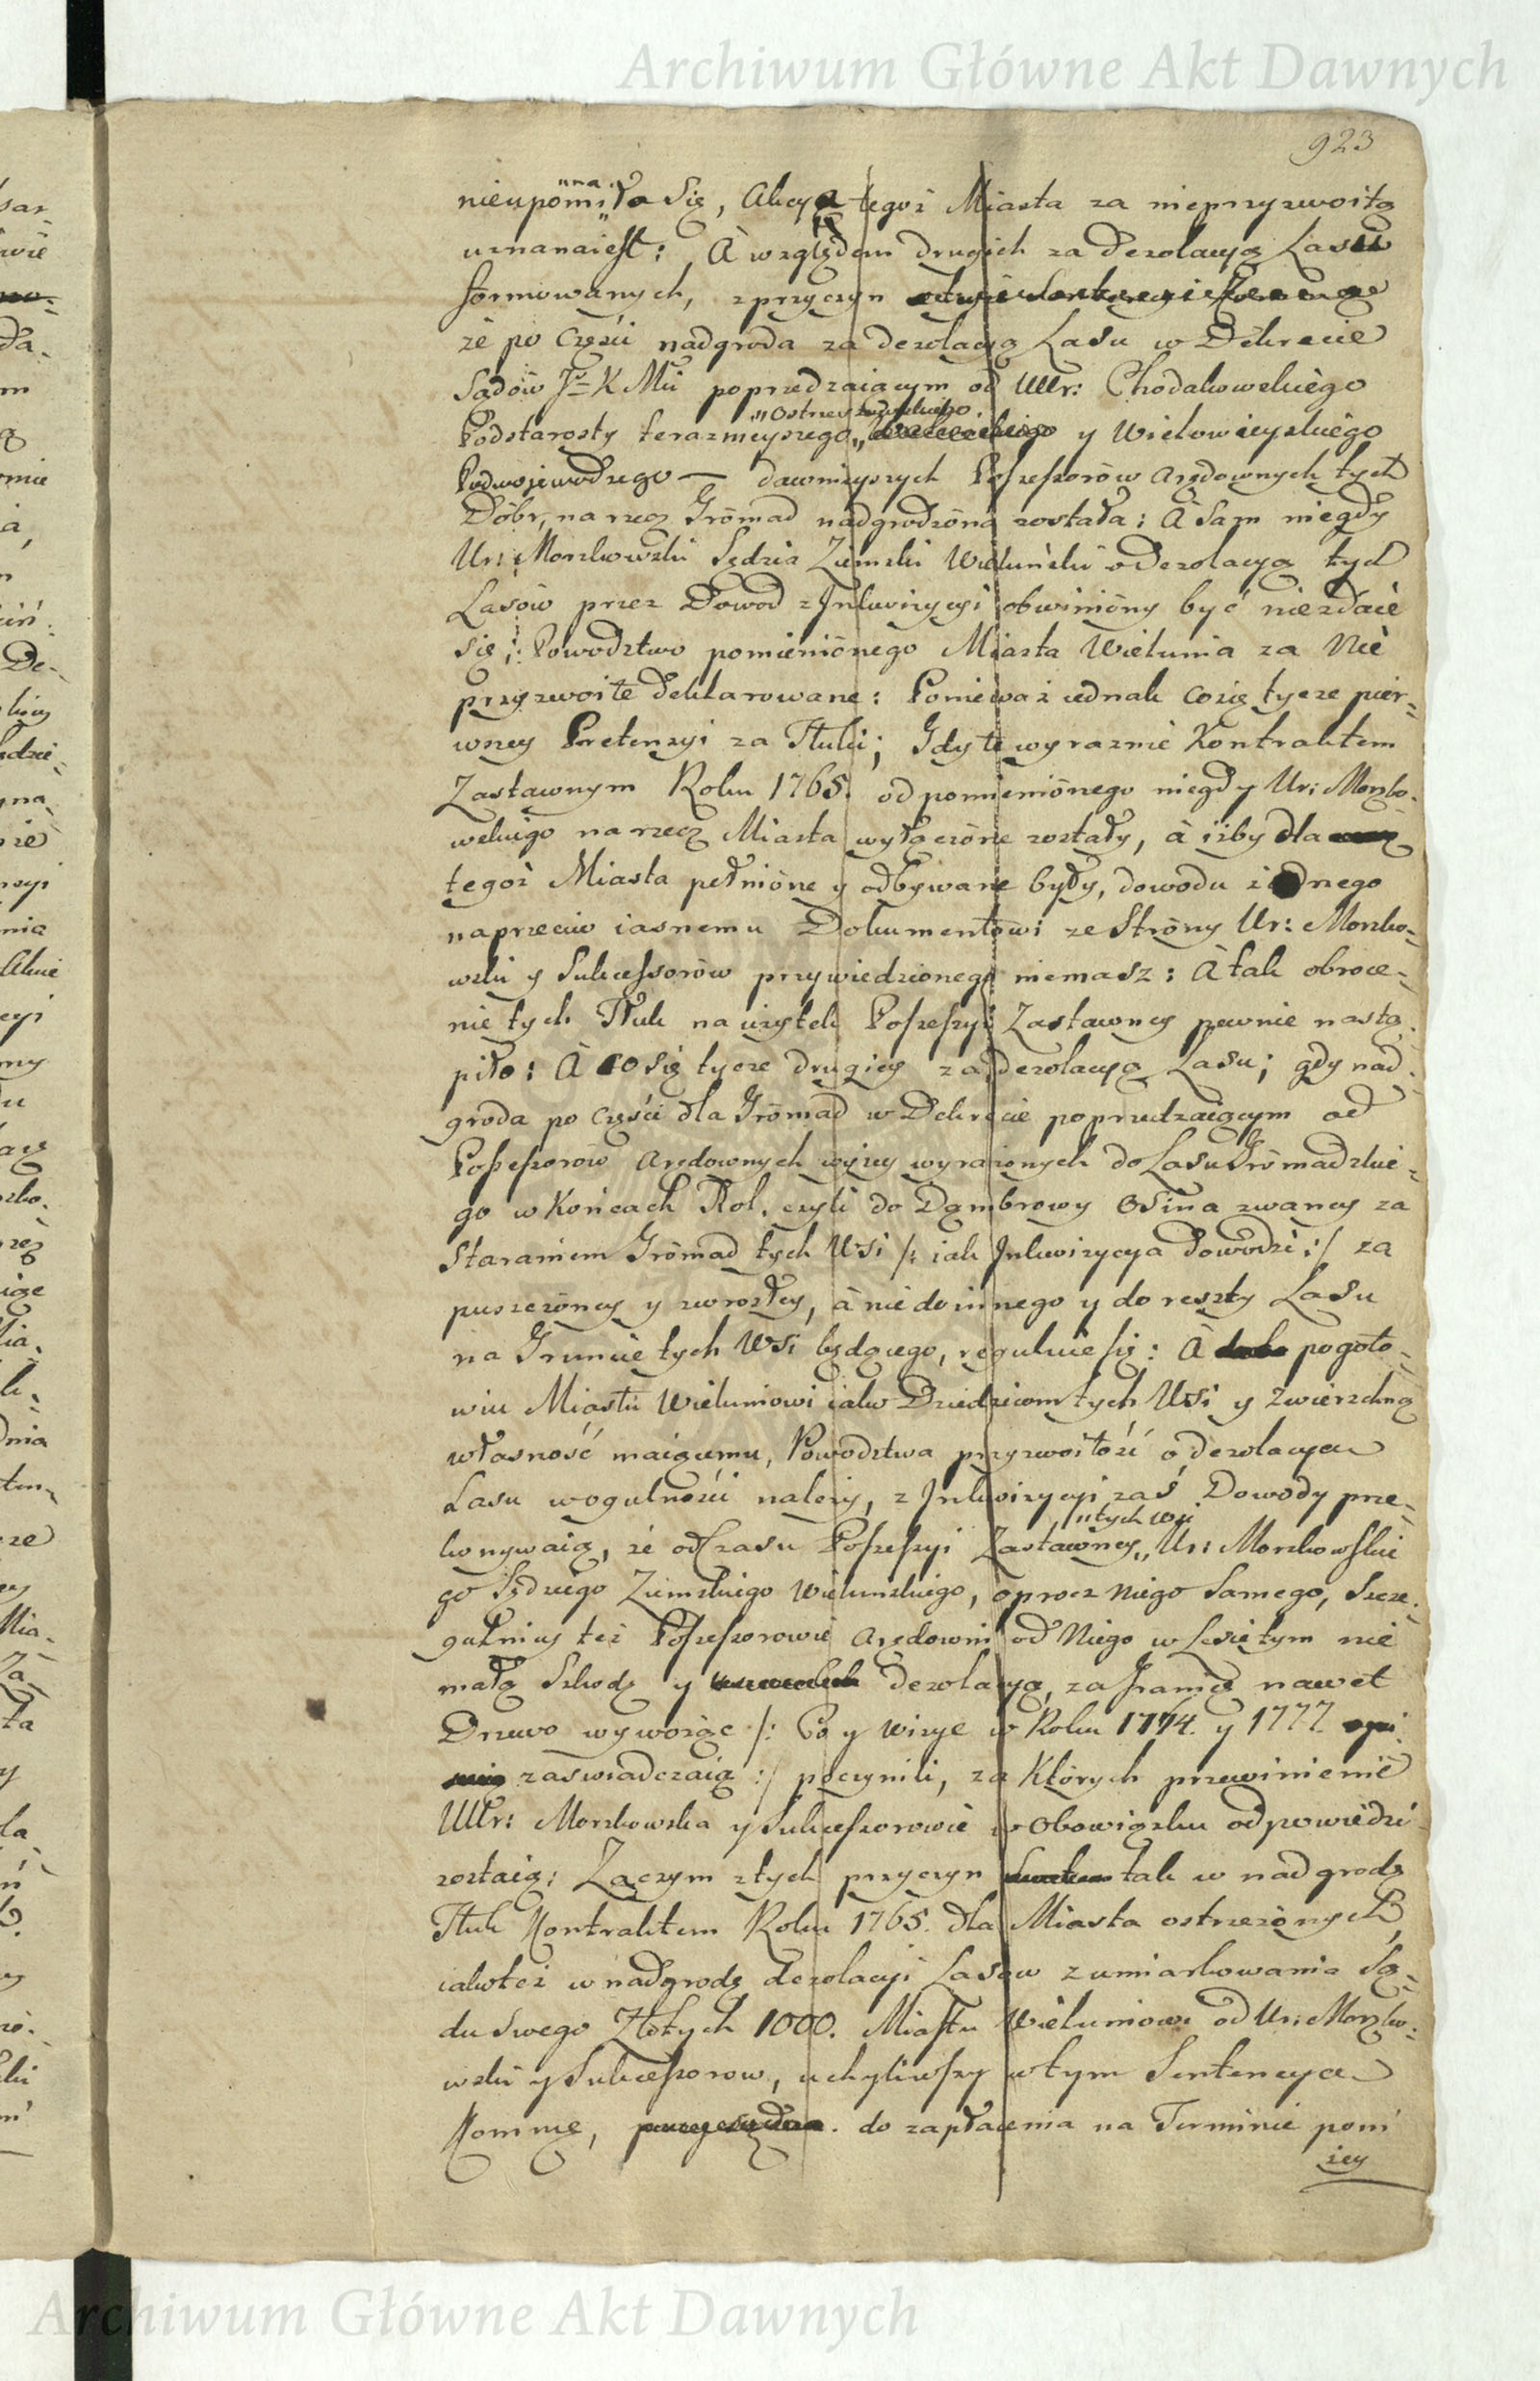 Archiwum Główne Akt Dawnych
923
nieupomina ła Się, Akcya tegoż Miasta za nieprzyzwoitą
uznanaiest: À względem drugich za dezolacyą Lasu
formowanych, z przyczyn
że po częsci nadgroda za dezolacyą Lasu w Dekrecie
Sądów J. K Mci poprzedzaiącym od Wur: Chodakowskiego
Podstarosty terazmieyszego „Ostrzeszowskiego„ y Wielowieyskiego
Podwojewodzego — dawnieyszych Possessorów arędownych tych
Dóbr, na rzecz Grómad nadgrodzóna została: À Sam niegdy
Ur: Morzkowski Sędzia Ziemski Wieluński o Dezolacyą tych
Lasów przez Dowod z Inkwizycyi obwinióny być niezdaie
się; Powodztwo pomieniónego Miasta Wielunia za Nie
przyzwoite deklarowane: Ponieważ iednak cosię tycze pier-
wszey Pretensyi za Tłuki; Gdy te wyraznie Kontraktem
Zastawnym Roku 1765. od pomieniónego niegdy Ur: Morzko-
wskiego na rzecz Miasta wyłączóne zostały, à iżby dla
tegoż Miasta pełnióne y odbywane były, dowodu żadnego
naprzeciw iasnemu Dokumentowi ze Stróny Ur: Morzko-
wski y Sukcessorów przywiedzionego niemasz: À tak obroce-
nie tych Tłuk na użytek Possessyi Zastawney pewnie nastą-
piło: À co się tycze drugiey za dezolacyą Lasu; gdy nad-
groda po części dla Grómad w Dekrecie poprzedzaiącym od
Possessorów arędownych wyżey wyrażonych do Lasu Grómadzkie-
go w Końcach Rol, czyli do Dąmbrowy Osina zwaney za
Staraniem Grómad tych Wsi /: iak Inkwizycya dowodzi :/ za
puszczóney y wzrosłey, à nie do innego y do reszty Lasu
na Gruncie tych Wsi będącego, reguluie się: À pogoto-
wiu Miastu Wieluniowi iako Dziedzicom tych Wsi y Zwierzchną
własność maiącemu, Powodztwa przyzwoitość o dezolacyą
Lasu wogulności należy, z Inkwizycyi zaś Dowody prze-
konywaią, że od Czasu Possessyi Zastawney „tych Wsi„ Ur: Morzkowskie
go Sędziego Ziemskiego Wielunskiego, oprocz Niego Samego, Szcze-
gulniey też Possessorowie arędowni od Niego w Lesie tym nie
małą Szkodę y dezolacyą, za Granicę nawet
Drzewo wywożąc /: Co y Wizye w Roku 1774. y 1777.
zaswiadczaią :/ poczynili, za Których przewinienie
Wur: Morzkowska y Sukcessorowie w obowiązku odpowiedzi
zostaią; Zaczym z tych przyczyn tak w nadgrodę
Tłuk Kontraktem Roku 1765. dla Miasta ostrzeżonych,
iakoteż w nadgrodę dezolacyi Lasow z umiarkowania Są-
du swego Złotych 1000. Miastu Wieluniowi od Ur: Morzko-
wski y Sukcessorow, uchyliwszy w tym Sentencya
Kommę, do zapłacenia na Terminie poni
żey
Archiwum Główne Akt Dawnych